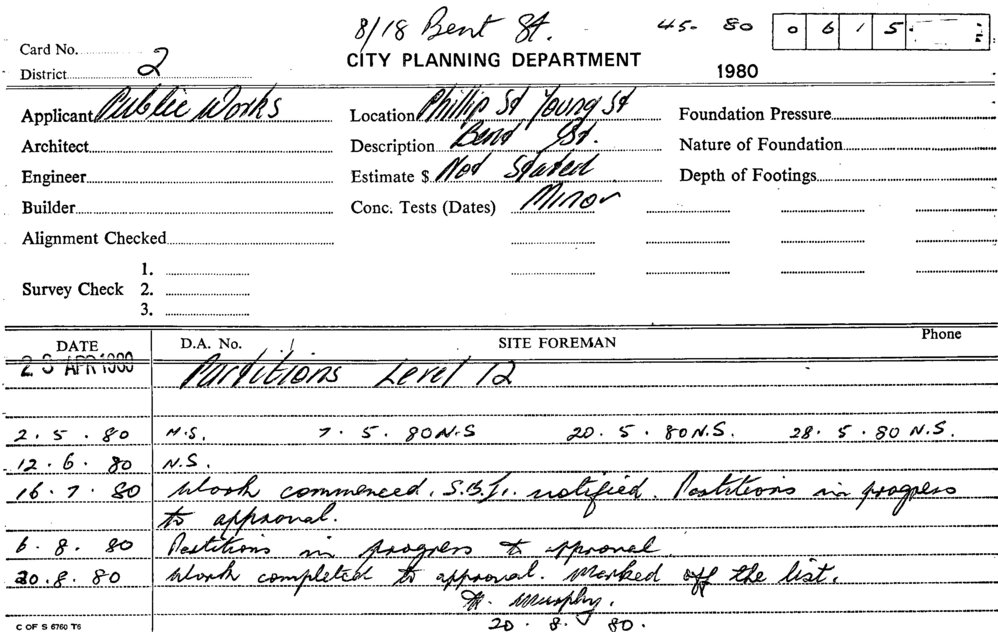 8/18 Bent St. 45- 80 0615
Card No.
CITY PLANNING DEPARTMENT
District 2 1980
Applicant Public Works Location Phillip St Young St Foundation Pressure
Architect Description Bent St. Nature of Foundation
Engineer Estimate $ Not Stated Depth of Footings
Builder Conc. Tests (Dates) Minor
Alignment Checked
1.
Survey Check 2.
3.
DATE D.A. No. SITE FOREMAN Phone
APR 1980 Partitions Level 12
2.5.80 N.S. 7.5.80 N.S 20.5.80 N.S. 28.5.80 N.S.
12.6.80 N.S.
16.7.80 Work commenced. S.B.I. notified. Partitions in progress
to approval.
6.8.80 Partitions in progress to approval.
20.8.80 Work completed to approval. Marked off the list.
Murphy.
20.8.80.
C OF S 6760 T6